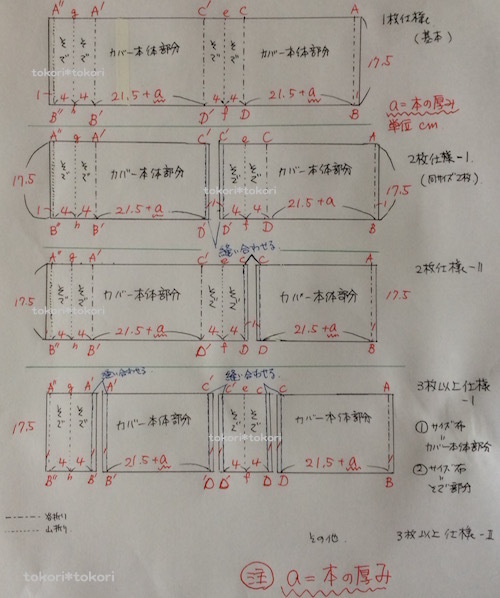 A" g A' C' e C A
1枚仕様
(基本)
そで そで カバー本体部分 そで そで カバー本体部分
tokori*tokori
17.5
1 4 4 21.5+a 4 4 21.5+a 1
B" h B' D' f D B
a=本の厚み
単位 cm
A" g A' C' C' e C A
2枚仕様-I
(同サイズ2枚)
そで そで カバー本体部分 そで そで カバー本体部分
17.5
tokori*tokori
1 4 4 21.5+a 4 4 21.5+a 1
B" h B' D' D' f D B
縫い合わせる
A" g A' C' e C C A
2枚仕様-II
そで そで カバー本体部分 そで そで カバー本体部分
17.5 17.5
4 4 21.5+a 4 4 1 21.5+a
B" h B' D' f D D B
縫い合わせる 縫い合わせる
A" g A' A' C' C' e C C A
3枚以上仕様
-I
そで そで カバー本体部分 そで そで カバー本体部分
17.5
① サイズ布
〃
カバー本体部分
tokori*tokori
② サイズ布
〃
そで部分
4 4 21.5+a 4 4 21.5+a
B" h B' B' D D' f D D B
谷折り
山折り
その他 3枚以上仕様-II
注 a=本の厚み
tokori*tokori